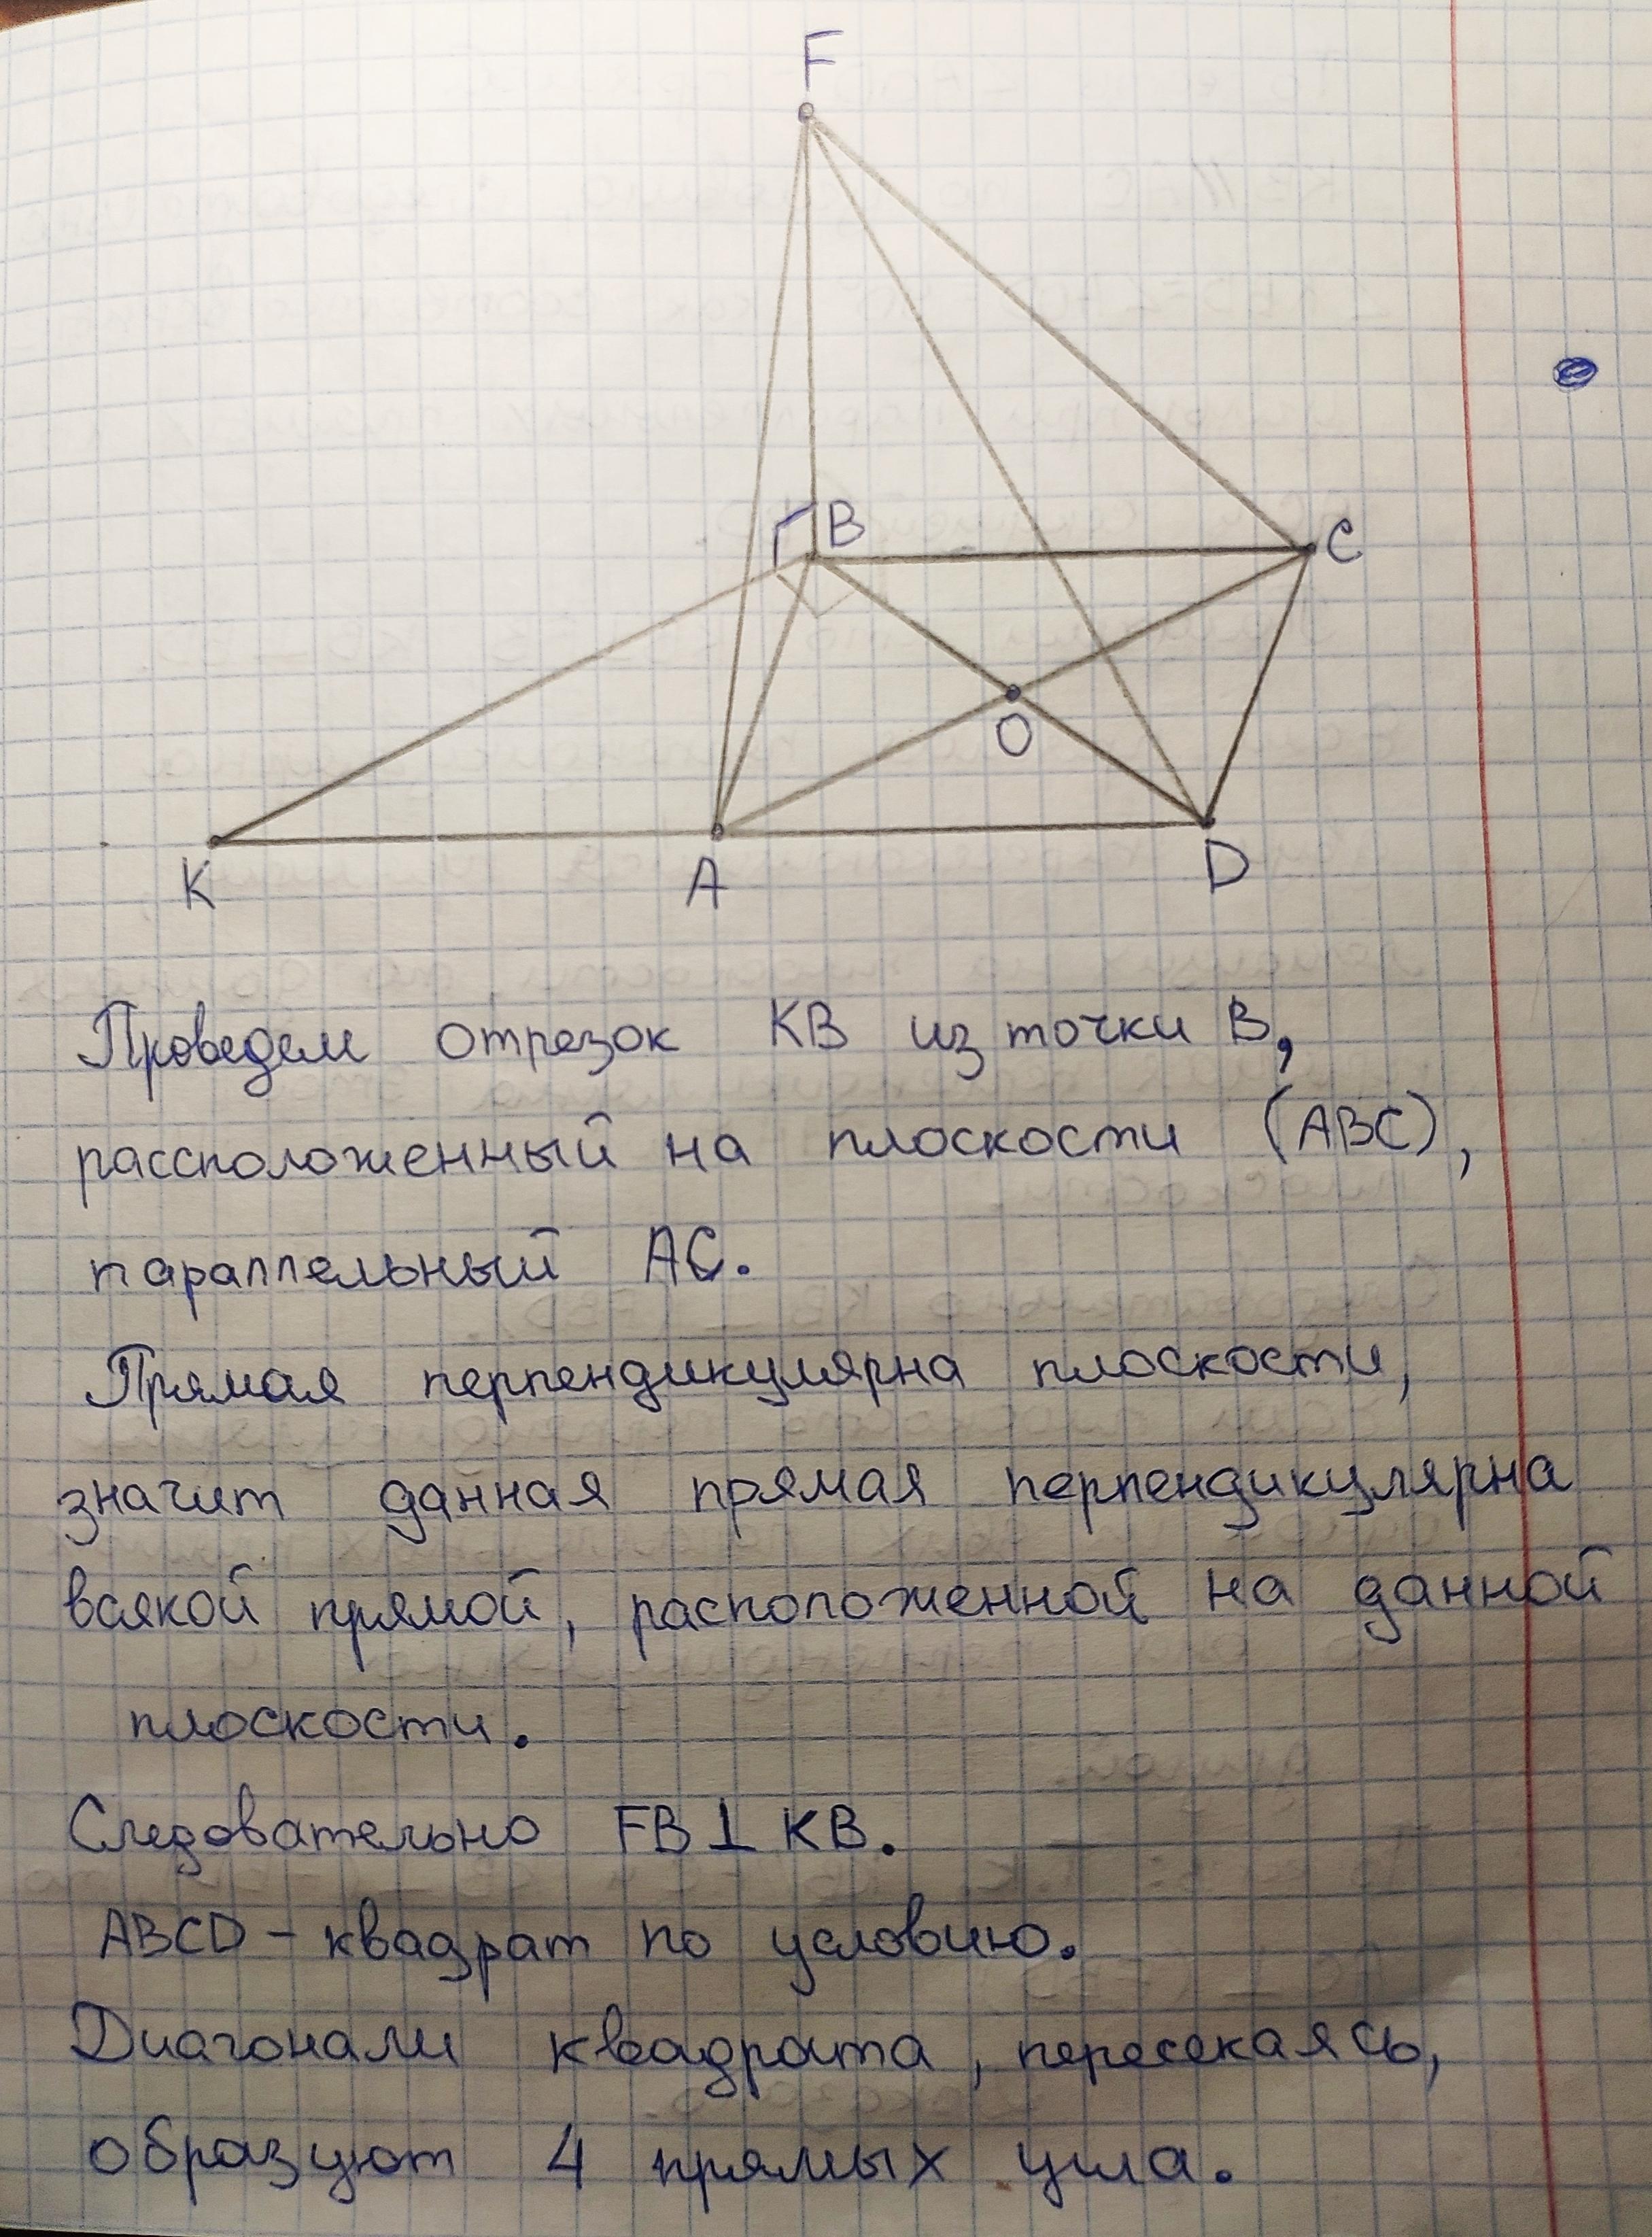 F
B
C
O
K
A
D
Проведем отрезок KB из точки B,
рассположенный на плоскости (ABC),
параллельный AC.
Прямая перпендикулярна плоскости,
значит данная прямая перпендикулярна
всякой прямой, расположенной на данной
плоскости.
Следовательно FB⊥KB.
ABCD - квадрат по условию.
Диагонали квадрата, пересекаясь,
образуют 4 прямых угла.